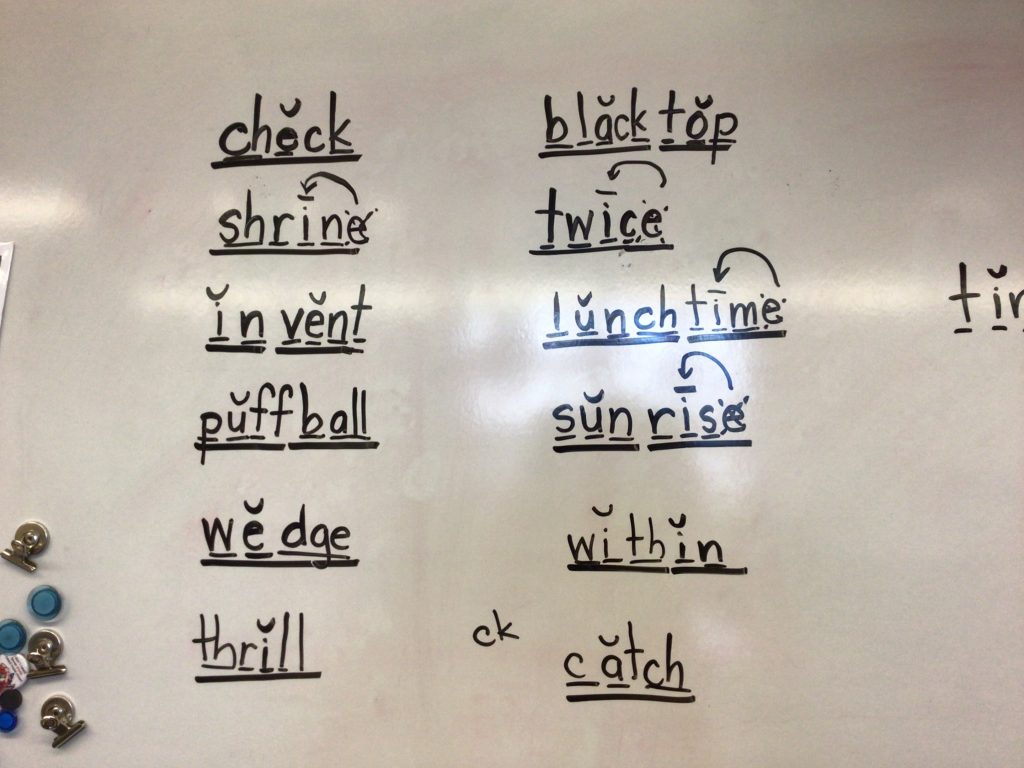 chĕck
shrīne
ĭn vĕnt
pŭff ball
wĕdge
thrĭll
blăck tŏp
twīce
lŭnch tīme
sŭn rīse
wĭth ĭn
ck
cătch